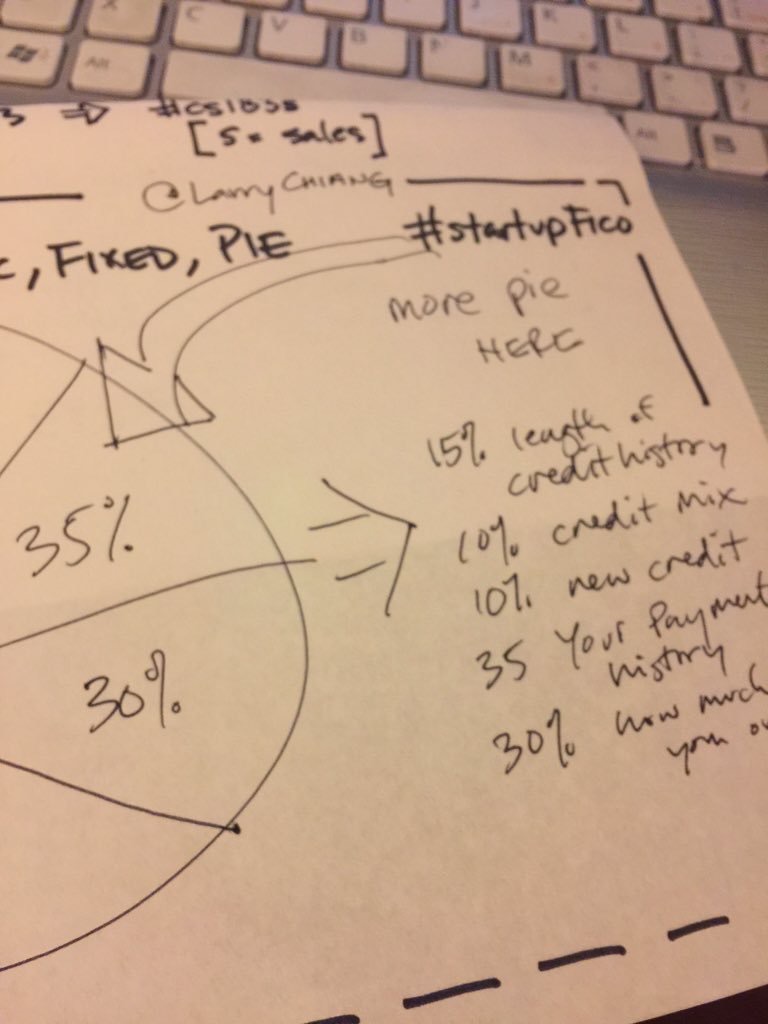 3 ⇒ #CS183S
[S = sales]
@LarryCHIANG
, FIXED, PIE
#startupFico
more pie
HERE
35%
30%
15% length of
credit history
10% credit mix
10% new credit
35 Your Payment
history
30% how much
you